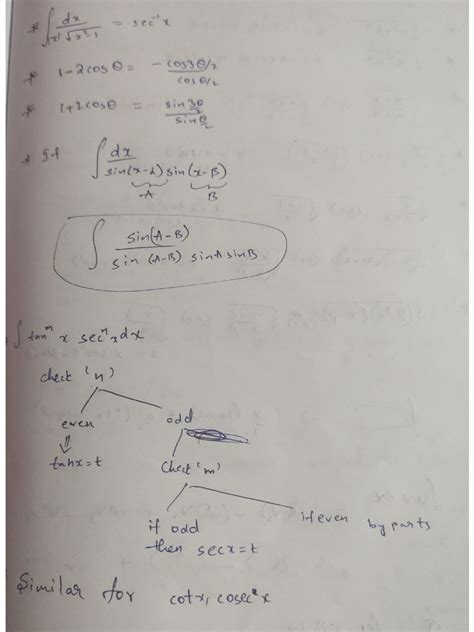 * ∫ dx / |x| √x²-1 = sec⁻¹x
* 1-2cosθ = -cos3θ/2 / cosθ/2
* 1+2cosθ = sin 3θ/2 / sin θ/2
* If ∫ dx / sin(x-α) sin(x-β)
A B
∫ sin(A-B) / sin (A-B) sinA sinB
∫ tanᵐ x secⁿ x dx
check 'n'
even odd
⇓
tanx=t check 'm'
if odd if even by parts
then secx=t
Similar for cotx, cosecⁿx